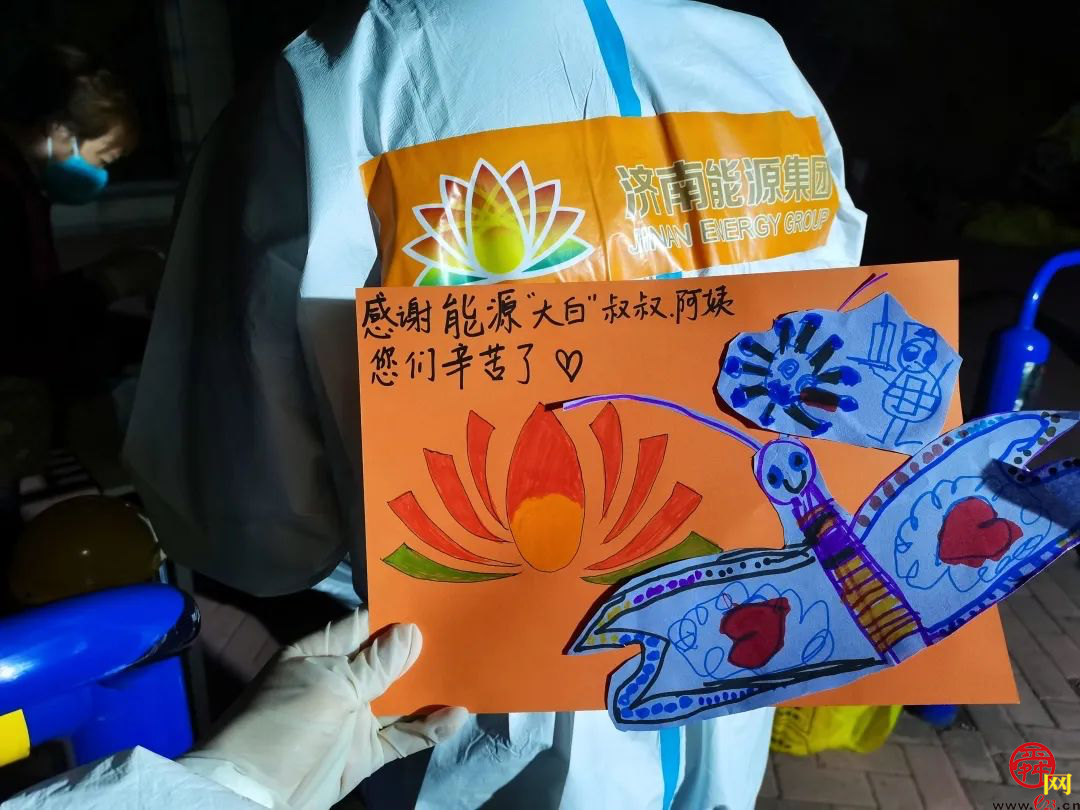 济南能源集团
JINAN ENERGY GROUP
感谢能源“大白”叔叔.阿姨
您们辛苦了♡
网